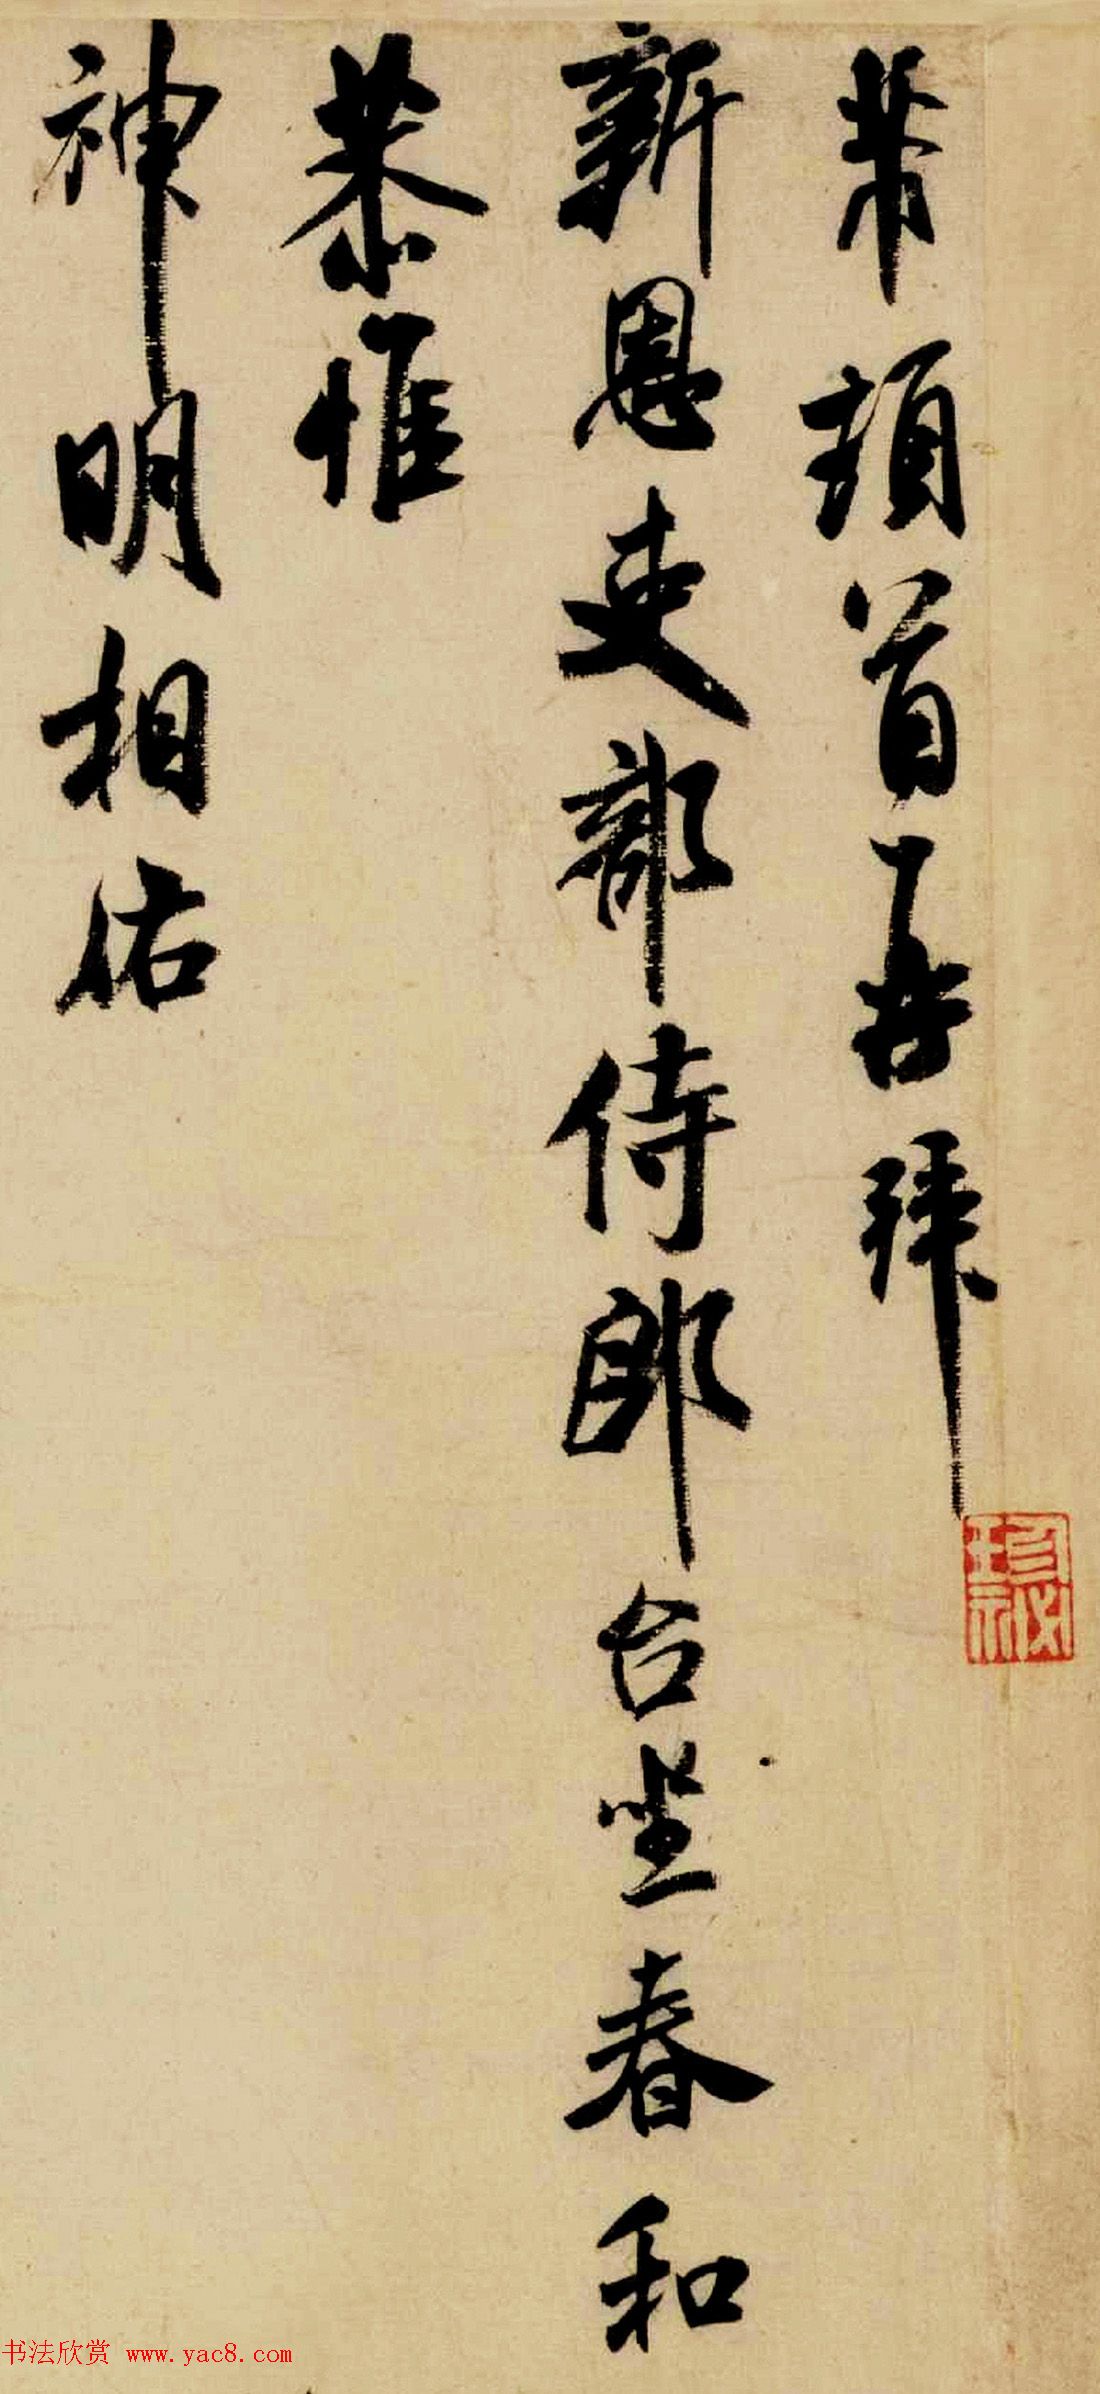 芾頓首再拜
新恩吏部侍郎台坐春和
恭惟
神明相佑
珍祕
书法欣赏 www.yac8.com